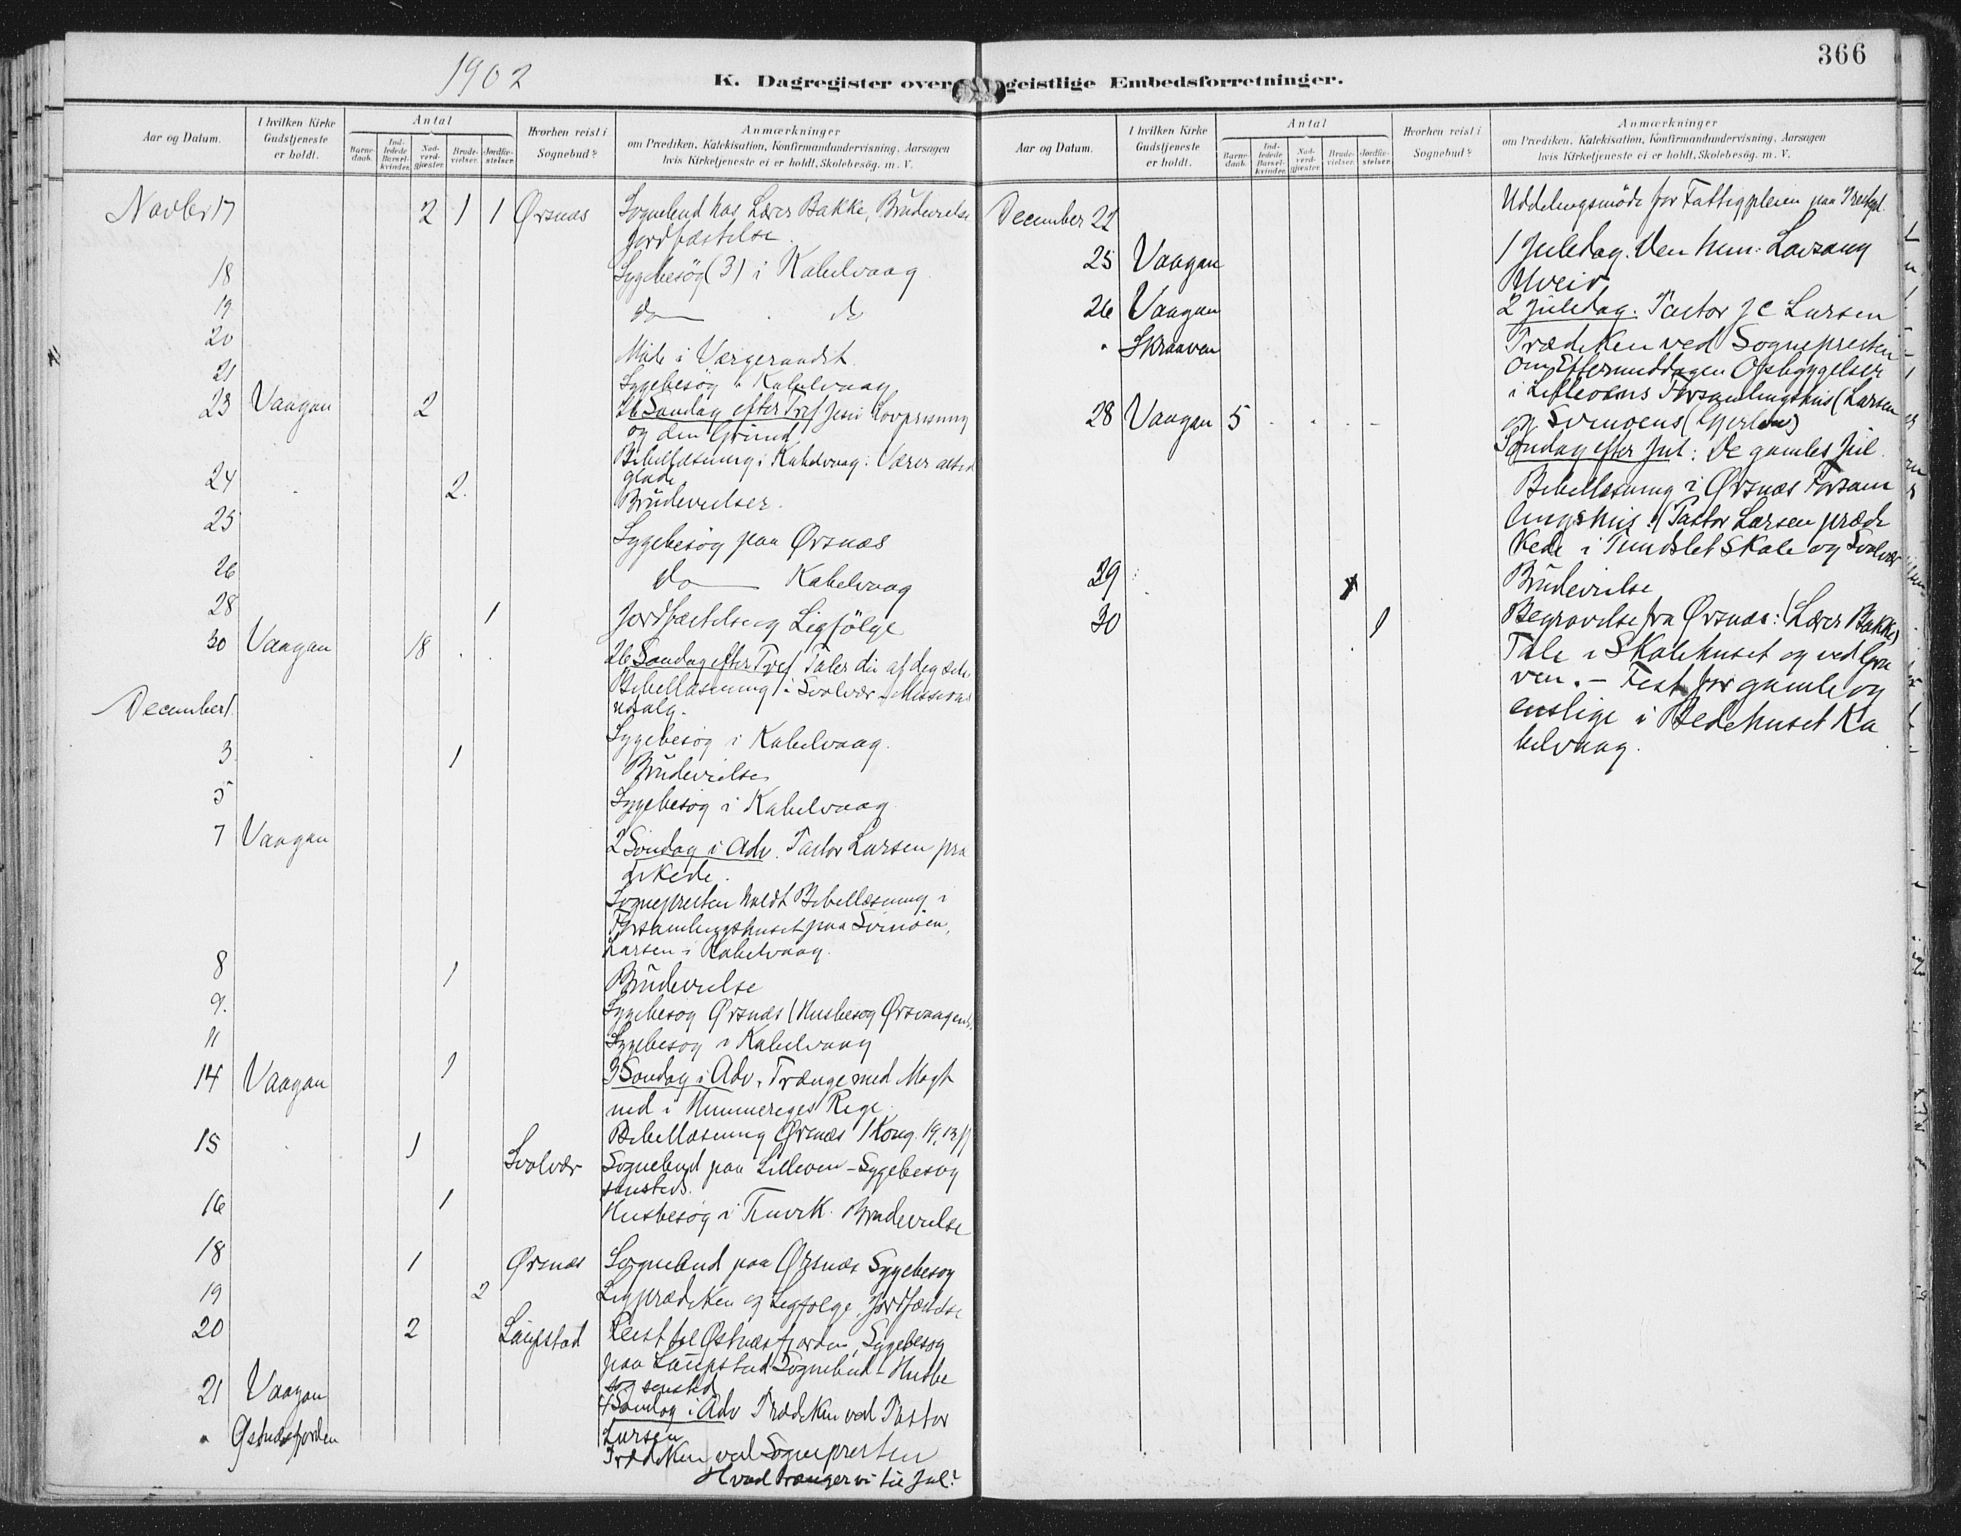 366
1902
K. Dagregister over geistlige Embedsforretninger.
Aar og Datum. I hvilken Kirke Gudstjeneste er holdt. Antal Barnedaab. Indledede Barselkvinder. Nadverdgjæster. Brudevielser. Jordfæstelser. Hvorhen reist i Sognebud? Anmærkninger om Prædiken, Katekisation, Konfirmandundervisning, Aarsagen hvis Kirketjeneste ei er holdt, Skolebesøg, m. V.
Novbr 17 2 1 1 Ørsnæs Sognebud hos Lærer Bakke, Brudevielse
Jordfæstelse.
18 Sygebesøg (3) i Kabelvaag.
19 do do
20 Møde i Værgeraadet.
21 Sygebesøg i Kabelvaag
23 Vaagan 2 26 Søndag efter Tref Jesu Lovprisning
og den Grund.
Bibellæsning i Kabelvaag: Værer altid
glade
24 2 Brudevielser.
25 Sygebesøg paa Ørsnæs
26 do Kabelvaag
28 1 Jordfæstelse og Ligfölge
30 Vaagan 18 26 Søndag efter Tref
Bibellæsning i Svolvær - Missions
udvalg.
December 1. Sygebesøg i Kabelvaag.
3 1 Brudevielse
5 Sygebesøg i Kabelvaag
7 Vaagan 2 Søndag i Adv. Pastor Larsen præ
dikede.
Sognepresten holdt Bibellæsning i
Forsamlingshuset paa Svinøen,
Larsen i Kabelvaag.
8 1 Brudevielse
9. Sygebesøg Ørsnæs (Husbesøg Ørsvaagen
11 Sygebesøg i Kabelvaag
14 Vaagan 1 3 Søndag i Adv. Trænge med Magt
ind i Himmeriges Rige.
Bibellæsning Ørsnæs 1 Kong. 19, 13 ff
15 1 Svolvær Sognebud paa - Sygebesøg
samsteds.
16 1 Husbesøg i Brudevielse
18 1 Ørsnæs Sognebud paa Ørsnæs Sygebesøg
19 2 Ligprædiken og Ligfølge, Jordfæstelse
20 2 Laupstad Reist til Østnæsfjorden, Sygebesøg
paa Laupstad Sognebud - Husbe
søg samsted
21 Vaagan 4 Søndag i Adv Prædiken ved Pastor
Larsen
" Østnæsfjorden Prædiken ved Sognepresten
Hvad trænger vi til Jul?
Aar og Datum. I hvilken Kirke Gudstjeneste er holdt. Antal Barnedaab. Indledede Barselkvinder. Nadverdgjæster. Brudevielser. Jordfæstelser. Hvorhen reist i Sognebud? Anmærkninger om Prædiken, Katekisation, Konfirmandundervisning, Aarsagen hvis Kirketjeneste ei er holdt, Skolebesøg, m. V.
December 22 Uddelingsmöde for Fattigpleien paa Prestgd.
25 Vaagan 1 Juledag. Den him: Lovsang
Uveir
26 Vaagan 2 Juledag. Pastor J C Larsen
" Skraaven Prædiken ved Sognepresten
om Eftermiddagen Opbyggelser
i Forsamlingshus (Larsen
28 Vaagan 5 og Svinøens
Søndag efter Jul: De gamles Jul.
Bibellæsning i Ørsnæs Forsam
lingshus. (Pastor Larsen præde
kede i Skole og Svolvær
29 1 Brudevielse
30 1 Begravelse fra Ørsnæs: (Lærer Bakke)
Tale i Skolehuset og ved Gra
ven. - Fest for gamle og
enslige i Bedehuset Ka
belvaag.